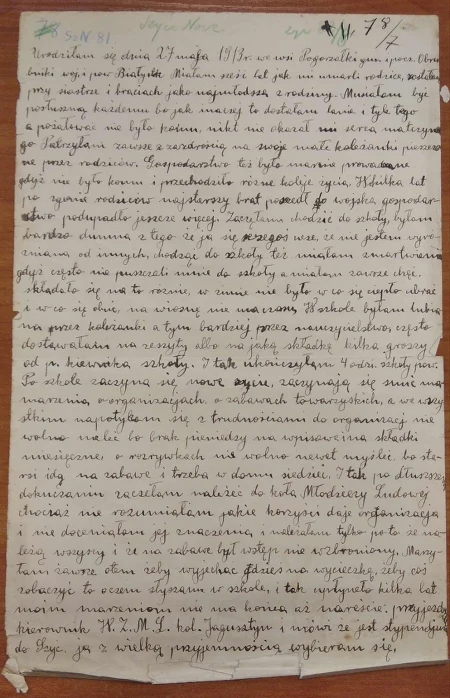 78 SzN. 81. Szyce Nowe 78/7
Urodziłam się dnia 27 maja 1913 r. we wsi Pogorzałki gm. i pocz. Obru-
bniki woj. i pow. Białystok. Miałam sześć lat jak mi umarli rodzice, zostałam
przy siostrze i braciach jako najmłodsza z rodziny. Musiałam być
posłuszną każdemu bo jak inaczej to dostałam lanie i tyle tego
a pożałować nie było komu, nikt nie okazał mi serca matczyne-
go. Patrzyłam zawsze z zazdrością na swoje małe koleżanki pieszczo-
ne przez rodziców. Gospodarstwo też było marnie prowadzone
gdyż nie było komu i przechodziło różne koleje życia. W kilka lat
po zgonie rodziców najstarszy brat poszedł do wojska, gospodar-
stwo podupadło jeszcze więcej. Zaczęłam chodzić do szkoły, byłam
bardzo dumną z tego że ja się czegoś uczę, że nie jestem wyró-
żnianą od innych, chodząc do szkoły też miałam zmartwienia
gdyż często nie puszczali mnie do szkoły a miałam zawsze chęć.
składało się na to różnie, w zimie nie było w co się ciepło ubrać
i w co się obuć, na wiosnę nie ma czasu. W szkole byłam lubia-
na przez koleżanki a tym bardziej przez nauczycielstwo, często
dostawałam na zeszyty albo na jaką składkę kilka groszy
od p. kierownika szkoły. I tak ukończyłam 4 odz. szkoły pow.
Po szkole zaczyna się nowe życie, zaczynają się snuć ma-
marzenia, o organizacjach, o zabawach towarzyskich, a we wszy-
stkim napotykam się z trudnościami do organizacj nie
wolno należeć bo brak pieniędzy na wpisowe i na składki
miesięczne, o rozrywkach nie wolno nawet myśleć, bo sta-
rsi idą na zabawę i trzeba w domu siedzieć. I tak po dłuższem
dokuczaniu zaczęłam należeć do koła Młodzieży Ludowej
chociaż nie rozumiałam jakie korzyści daje organizacja
i nie doceniałam jej znaczenia i należałam tylko po to że na-
leżą wszyscy i że na zabawę był wstęp nie wzbroniony. Marzy-
łam zawsze otem żeby wyjechać gdzieś na wycieczkę, żeby coś
zobaczyć to oczem słyszałam w szkole, i tak upłynęło kilka lat
moim marzeniom nie ma końca aż nareście. przyjeżdża
kierownik W. Z. M. L. kol. Jagusztyn i mówi że jest stypendjum
do Szyc, ja z wielką przyjemnością wybieram się.